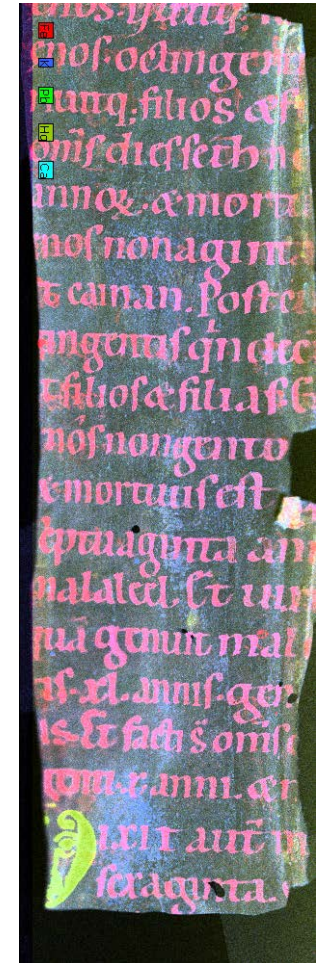 Fe
K
Pb
Hg
Ca
enoſ. octingen
nuitq; filioſ & f
omīſ dieſ ſeth n
annoꝝ. & mortu
noſ nonaginta
& cainan. Poſt cu
ingentiſ q̇ndec
t filioſ & filiaſ.
noſ nongento
& mortuuſ eſt
eptuaginta ann
malaleel. Et uix
genuit mal
iſ. xl. anniſ. gen
Et facti s̄ omīſ
x. anni. & m
Vixit aut̄ m
ſexaginta.